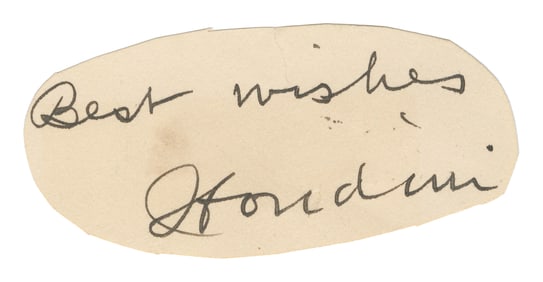 Best wishes
Houdini